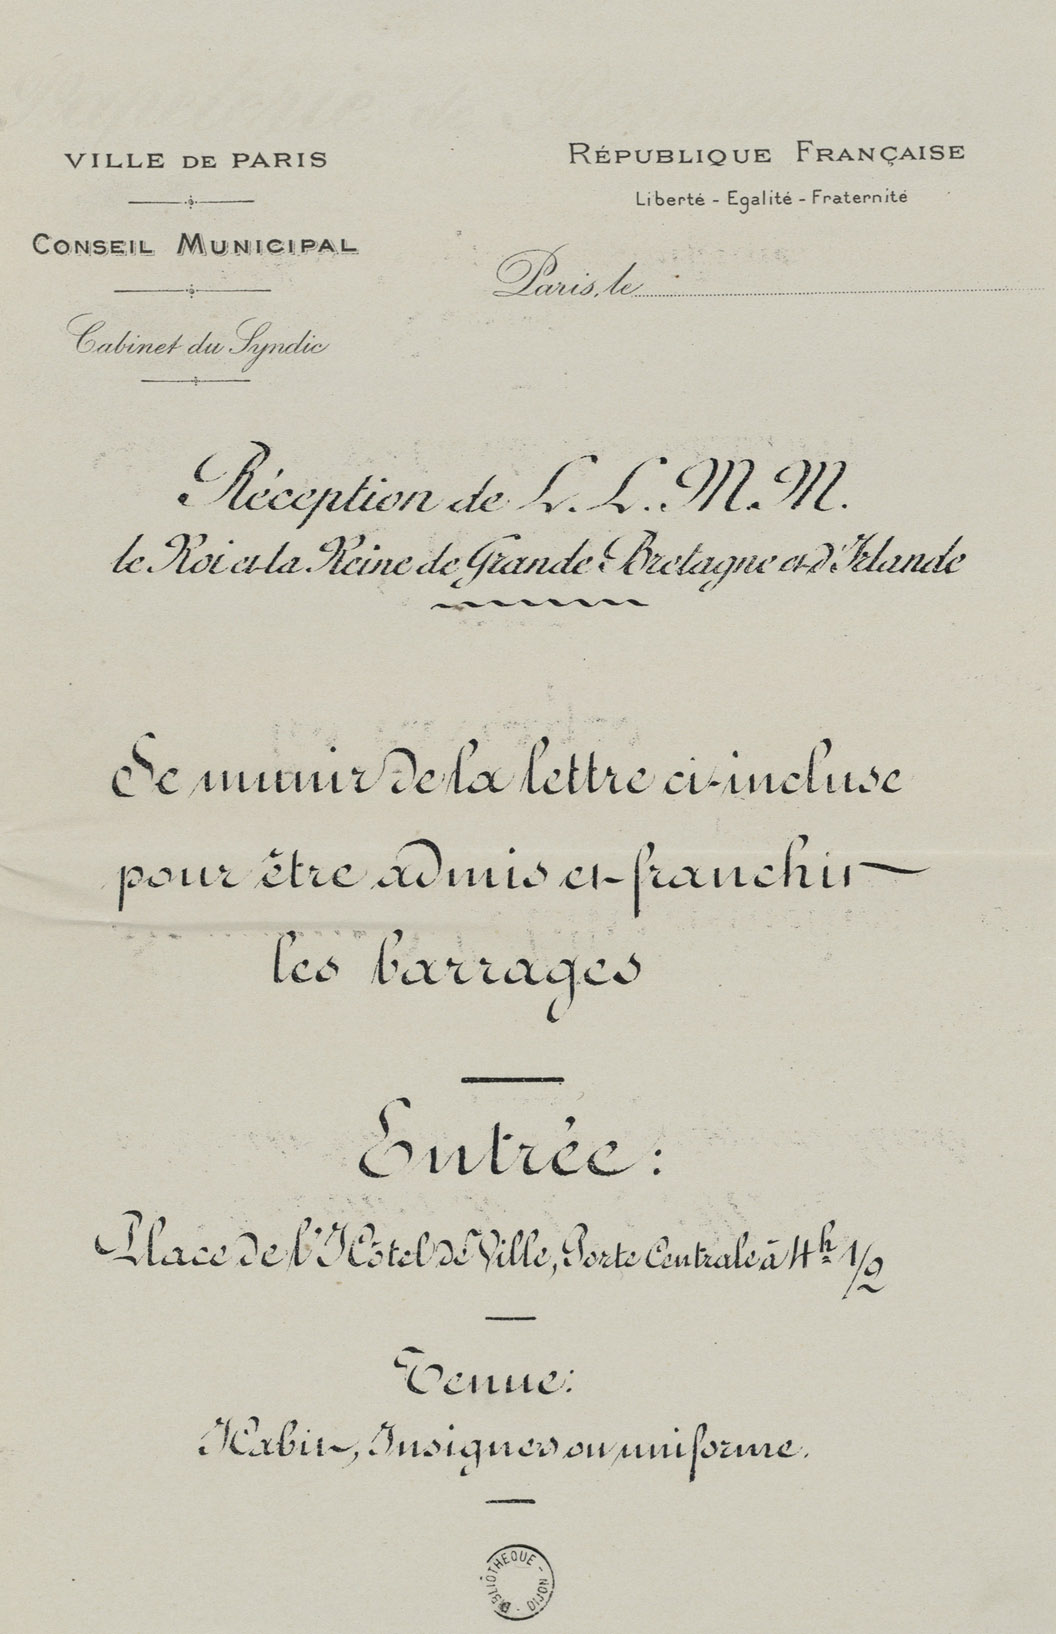 VILLE DE PARIS
CONSEIL MUNICIPAL
Cabinet du Syndic
RÉPUBLIQUE FRANÇAISE
Liberté - Egalité - Fraternité
Paris, le
Réception de L. L. M. M.
le Roi et la Reine de Grande-Bretagne et d'Irlande
Se munir de la lettre ci-incluse
pour être admis et franchir
les barrages
Entrée :
Place de l'Hôtel de Ville, Porte Centrale à 4h 1/2
Tenue :
Habit, Insignes ou uniforme.
BIBLIOTHEQUE - DIJON